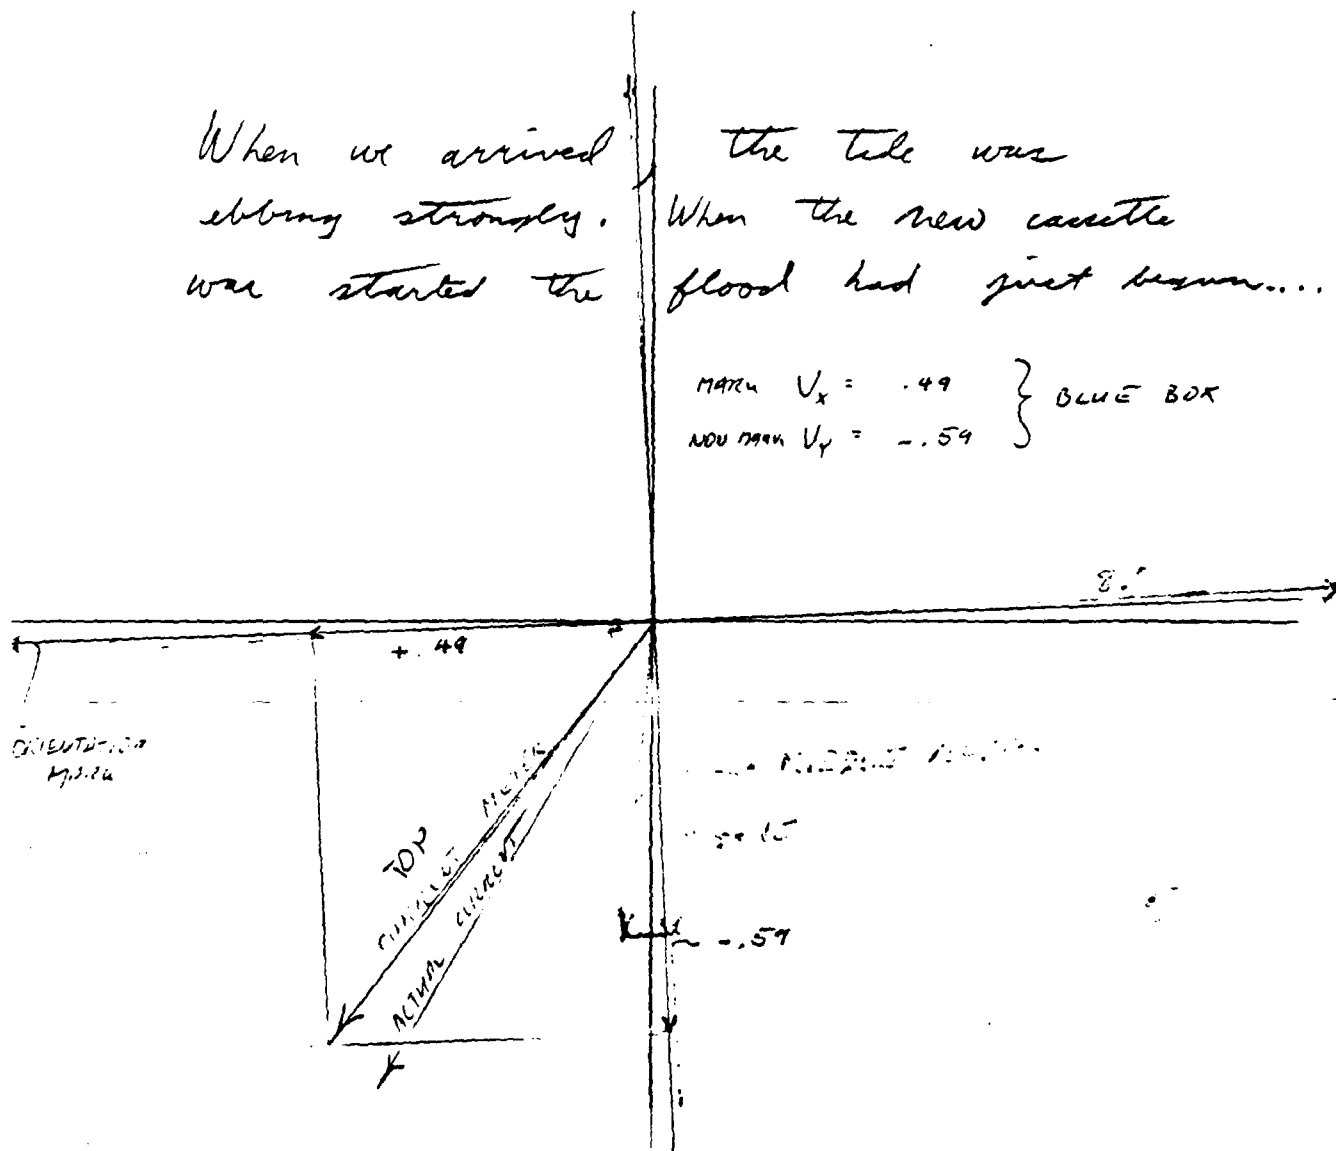 When we arrived the tide was
ebbing strongly. When the new cassette
was started the flood had just begun....
MARK Vx = .49
NON MARK VY = -.59
} BLUE BOX
8.
+.49
ORIENTATION
MARK
TOP
CURRENT METER
ACTUAL CURRENT
~ -.59